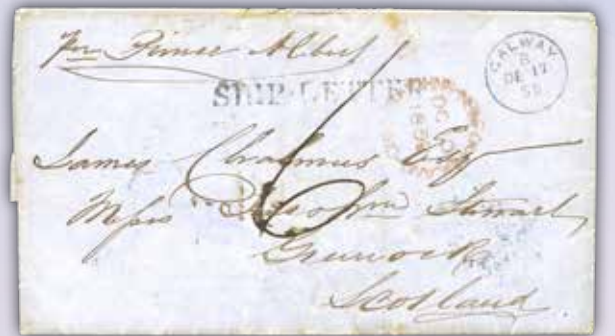 per Prince Albert
SHIP-LETTER
GALWAY
B
DE 17
58
James Chalmers Esq
Messrs Stewart
Greenock
Scotland